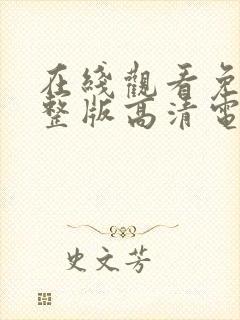 在綫觀看免
整版高清電
史文芳